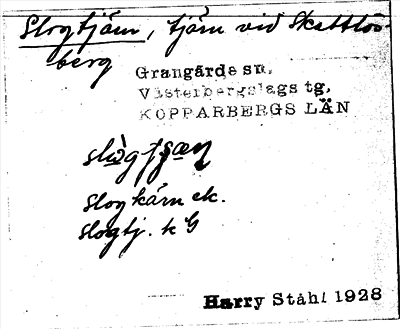 Slogtjärn, tjärn vid Skattlös-
berg
Grangärde sn,
Västerbergslags tg,
KOPPARBERGS LÄN
Slogkärn ek.
Slogtj. k G
Harry Ståhl 1928